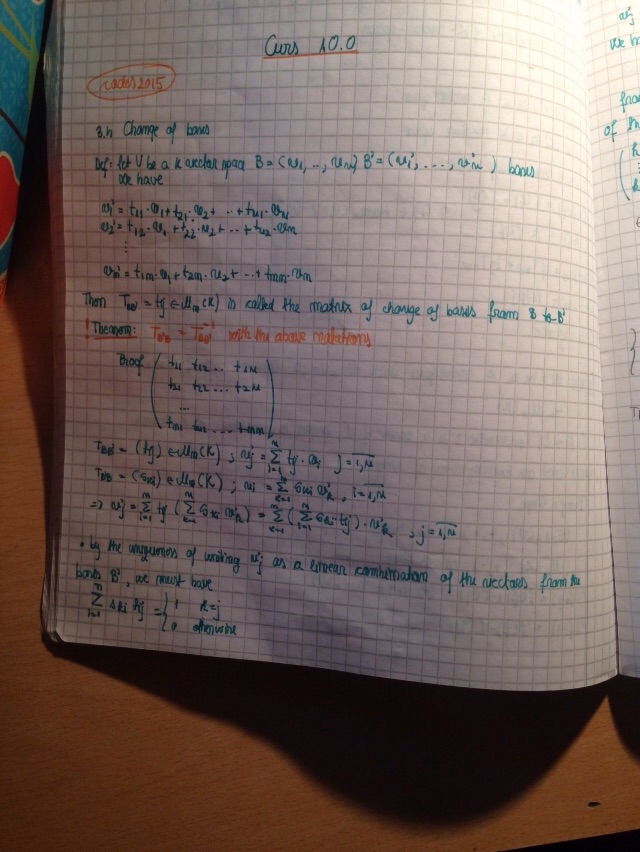 Curs 10.0
rades2015
3.4 Change of bases
Def: let V be a K vector space B = (v1, .., vn) B' = (v1', ...., vn') bases
We have
v1' = t11·v1 + t21·v2 + ... + tn1·vn
v2' = t12·v1 + t22·v2 + ... + tn2·vn
⋮
vn' = t1n·v1 + t2n·v2 + ... + tnn·vn
Then TBB' = tij ∈ Mn(K) is called the matrix of change of bases from B to B'
! Theorem: TB'B = TBB'^-1 with the above notations
Proof ( t11 t12 ... t1n
t21 t22 ... t2n
...
tn1 tn2 ... tnn )
TBB' = (tij) ∈ Mn(K) ; vj' = Σ i=1 n tij·vi j = 1,n
TB'B = (ski) ∈ Mn(K) ; vi = Σ k=1 n ski vk' , i = 1,n
=> vj' = Σ i=1 n tij ( Σ k=1 n ski vk' ) = Σ k=1 n ( Σ i=1 n ski tij ) · vk' , j = 1,n
• by the uniqueness of writing v'j as a linear combination of the vectors from the
bases B', we must have
Σ i=1 n ski tij = { 1 k=j
0 otherwise
we ha
from
of